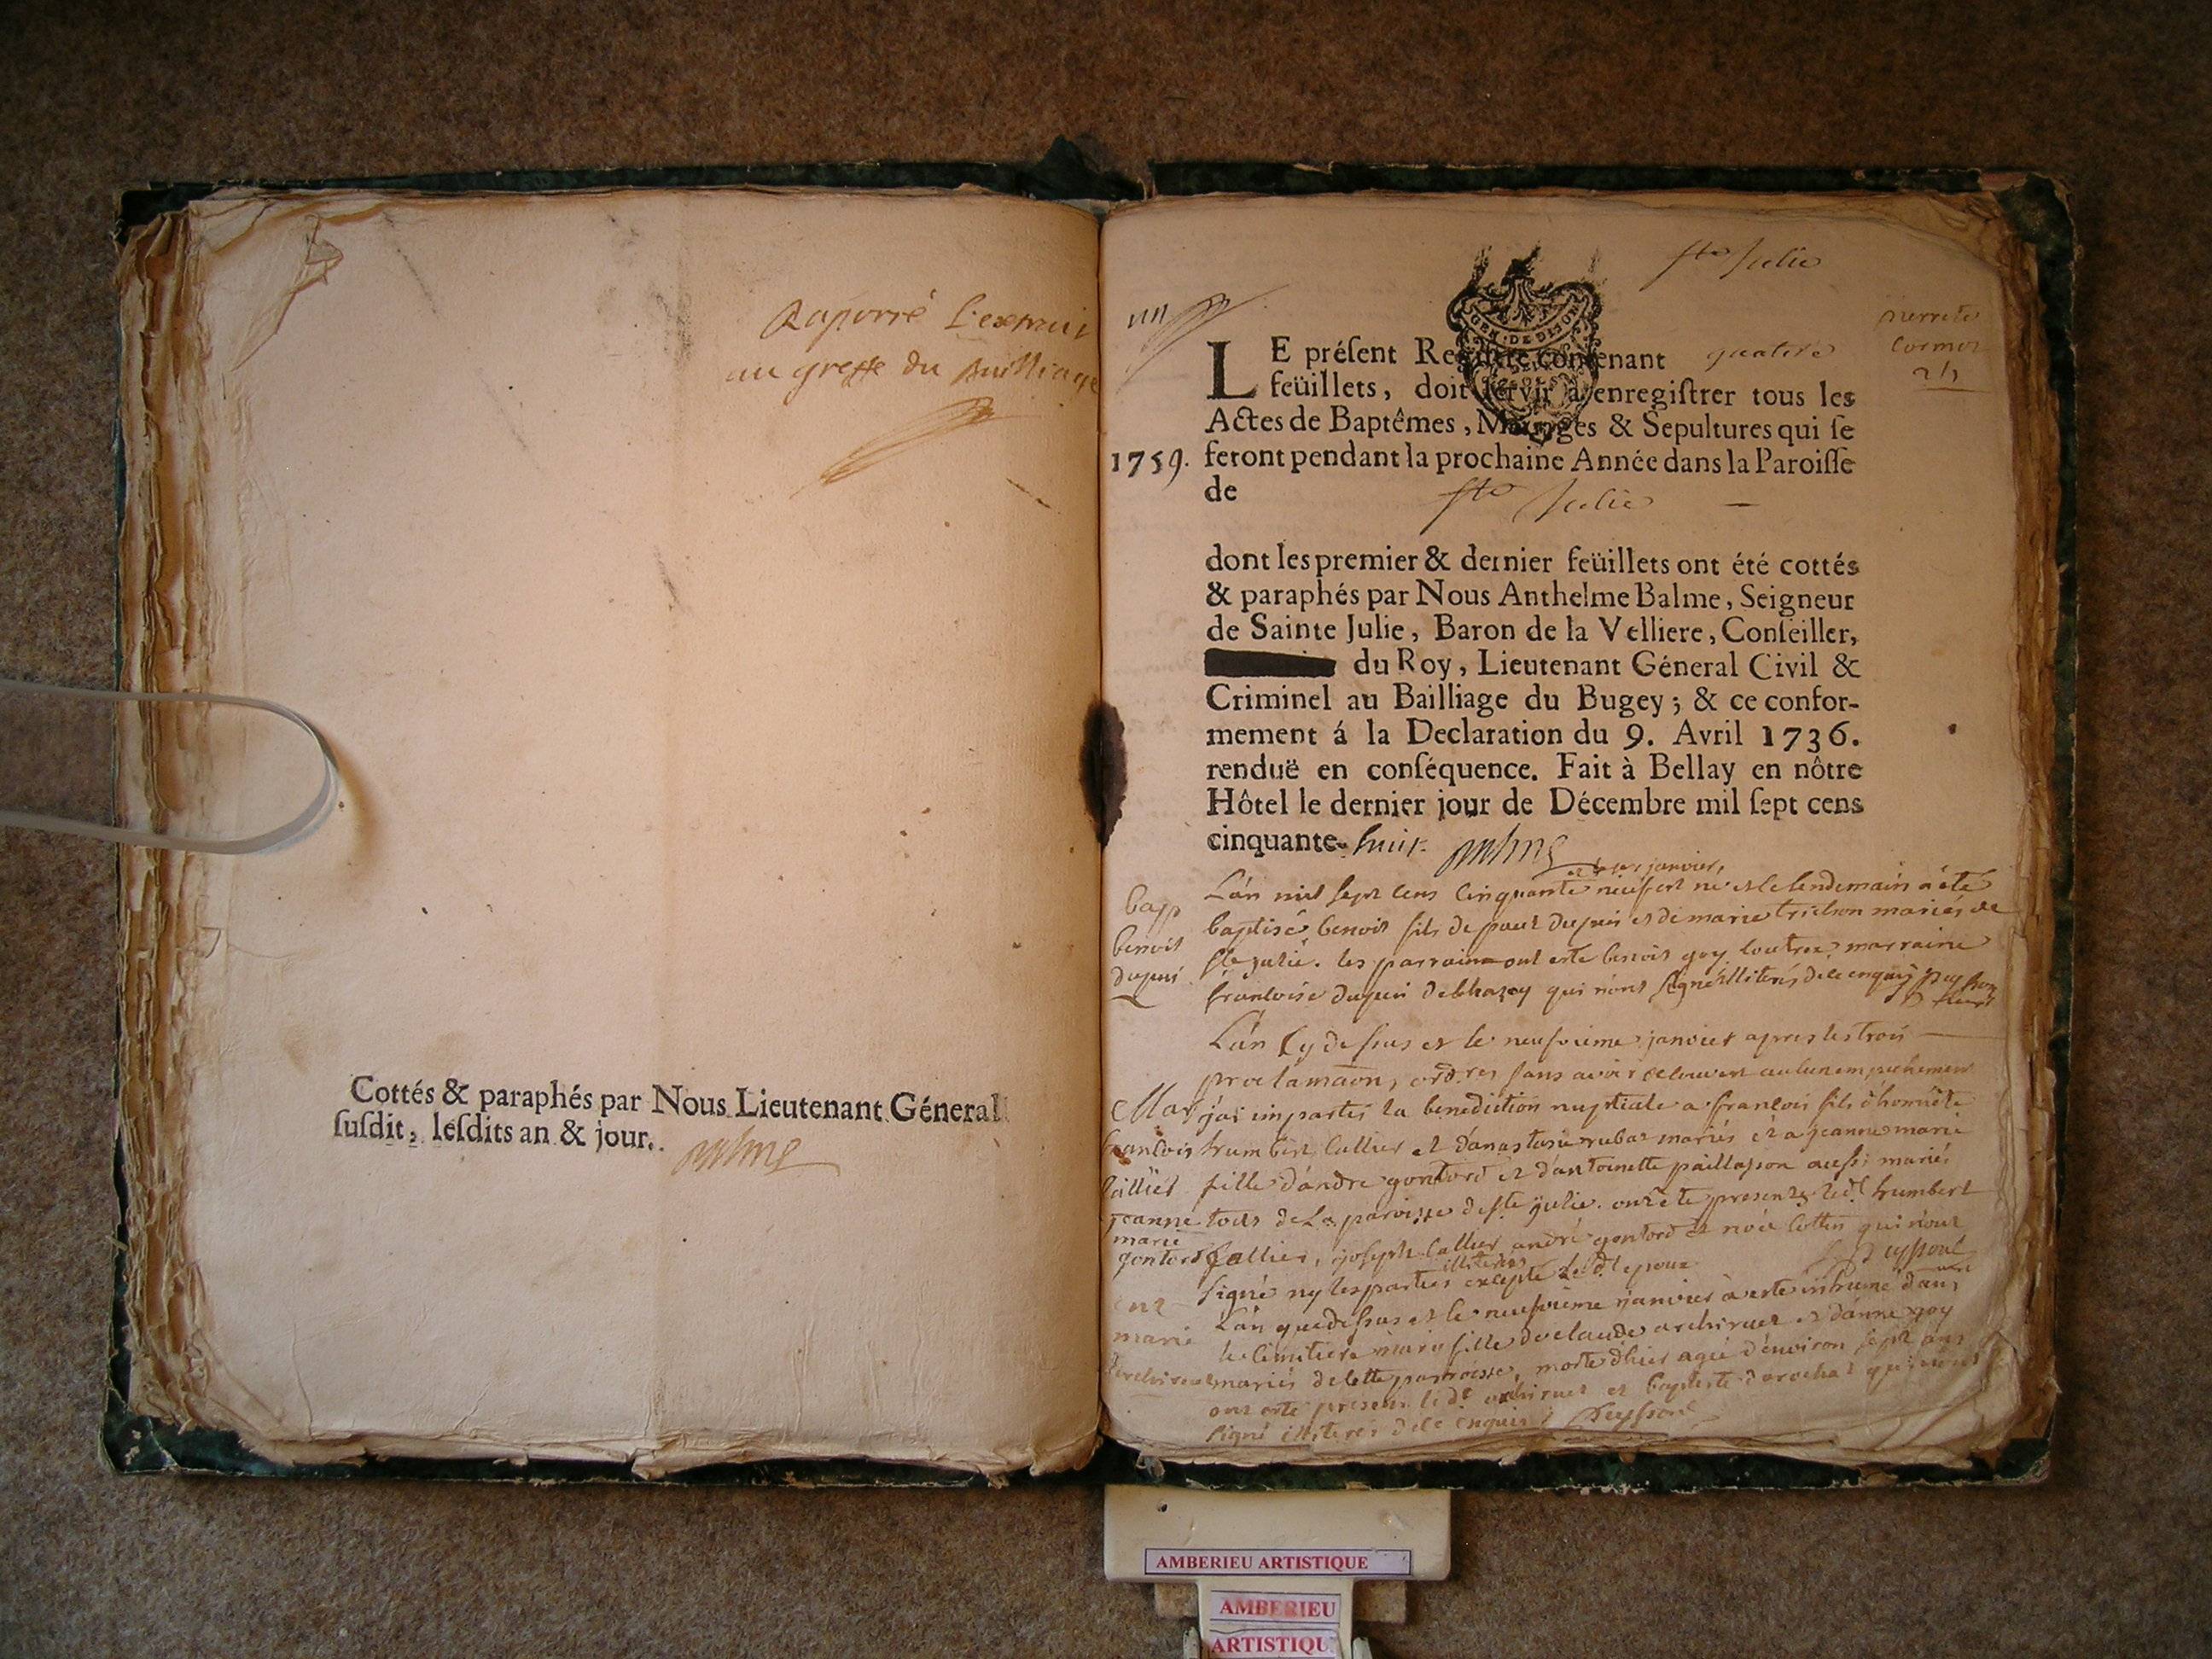 Raporté l'extrait
au greffe du Bailliage
Cottés & paraphés par Nous Lieutenant Géneral
ſuſdit, leſdits an & jour.
Balme
ſte Julie
un
pierrete
Cormoz
LE préſent Regiſtre contenant quatorze
feüillets, doit ſervir à enregiſtrer tous les
Actes de Baptêmes, Mariages & Sepultures qui ſe
1759. feront pendant la prochaine Année dans la Paroiſſe
de ſte Julie
dont les premier & dernier feüillets ont été cottés
& paraphés par Nous Anthelme Balme, Seigneur
de Sainte Julie, Baron de la Velliere, Conſeiller,
du Roy, Lieutenant Géneral Civil &
Criminel au Bailliage du Bugey; & ce confor-
mement á la Declaration du 9. Avril 1736.
renduë en conſéquence. Fait à Bellay en nôtre
Hôtel le dernier jour de Décembre mil ſept cens
cinquante-huit Balme
janvier,
L'an mil sept cens cinquante neuf est né et le lendemain a été
bapt
benoit
dupui
baptisé benoit fils de paul dupui et de marie trichon mariés de
ste julie. les parrain ont esté benoit goy marraine
francoise dupui de qui n'ont signé illiterés de ce enquis
L'an cy dessus et le neufvieme janvier apres les trois
proclamaon, ord.res sans avoir decouvert aucun empechement
Mar
francois
Callier
jeanne
marie
gontord
j'ai imparti la benediction nuptiale a francois fils d'honnéte
humbert Callier et d'anastasie rubat mariés et a jeanne marie
fille d'andré gontord et d'antoinette paillasson aussi mariés
tous de La paroisse de ste julie. ont été presents led.t humbert
Callier, joseph Callier andré gontord et noel Cottin qui n'ont
signé ny les parties illiterés excepté led.t epoux
L'an que dessus et le neufvieme janvier a esté inhumé dans
marie
le cimitiere marie fille de claude archiruet et d'anne goy
mariés de cette parroisse, morte d'hier agée d'environ sept ans
ont esté presents le d.t archiruet et baptiste derochas qui n'ont
signé illiterés de ce enquis